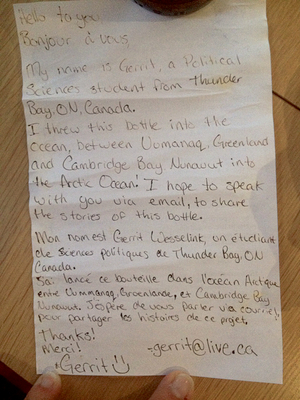 Hello to you
Bonjour à vous,
My name is Gerrit, a Political
Sciences student from Thunder
Bay, ON, Canada.
I threw this bottle into the
ocean, between Uumanaq, Greenland
and Cambridge Bay Nunavut into
the Arctic Ocean! I hope to speak
with you via email, to share
the stories of this bottle.
Mon nom est Gerrit Wesselink, un étudiant
de Sciences politiques de Thunder Bay, ON
Canada.
J'ai lancé ce bouteille dans l'océan Arctique
entre Uummanaq, Groenlande, et Cambridge Bay
Nunavut. J'éspère de vous parler via courriel
pour partager les histoires de ce projet.
Thanks!
Merci!
-gerrit@live.ca
-Gerrit